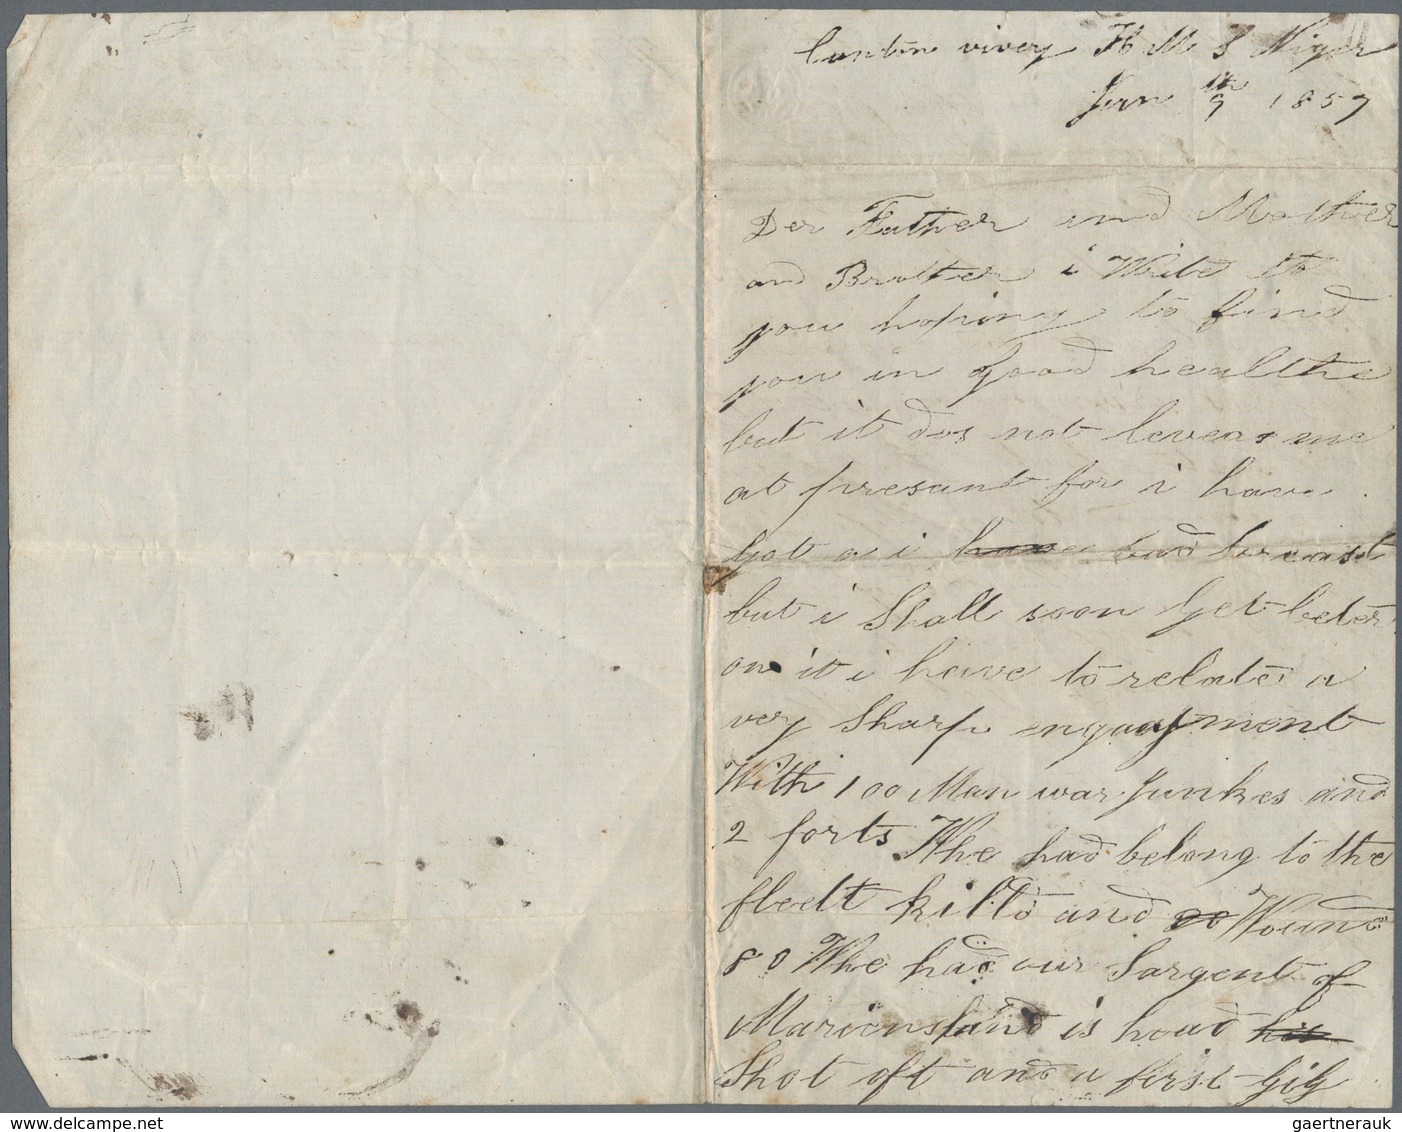 Canton rivey H M S Niger
Jun 9th 1857
Der Father and Mother
and Brother i Write to
you hoping to find
you in good healthe
but it dos not leveas me
at presant for i have
Got a i have bad breast
but i Shall soon Get beter
on it i have to relate a
very Sharp engagment
With 100 Man war Junkes and
2 forts Whe had belong to the
fleelt killd and Wound
80 Whe had our Sargent of
Mariens and is head hit
Shot oft and a first Gig
gaertnerauk @ delcampe.net